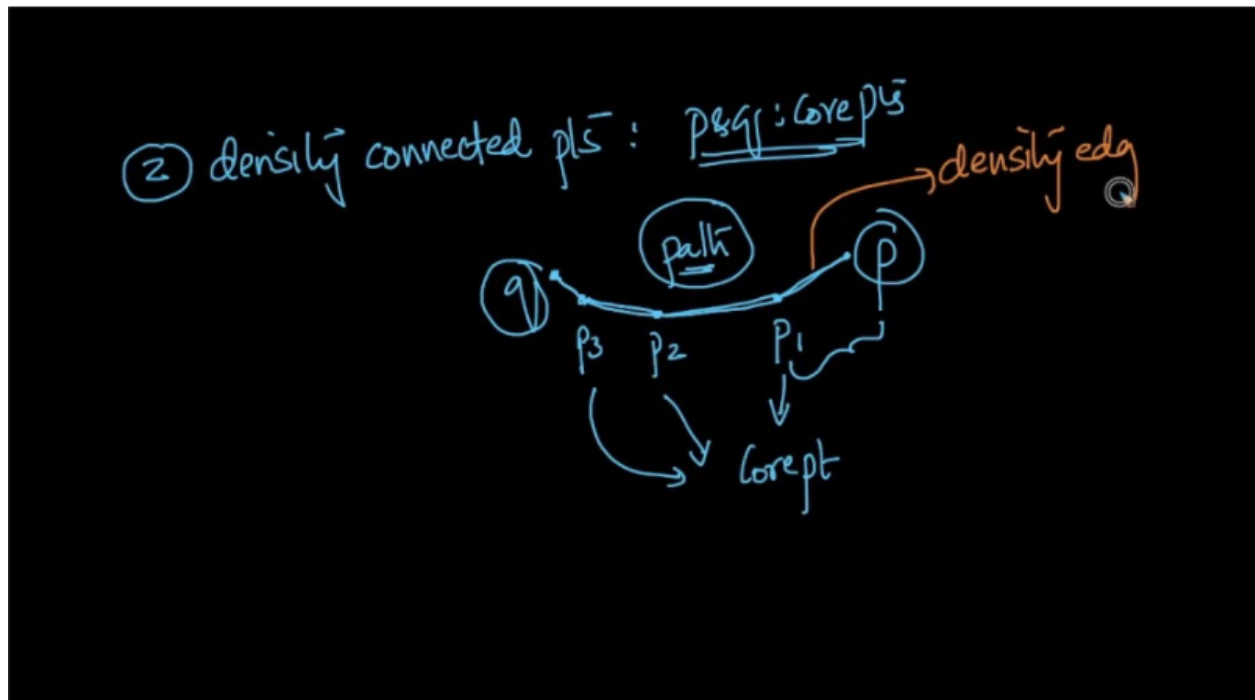 ② density connected pts : p&q : core pts
density edg
path
q p
p3 p2 p1
Core pt